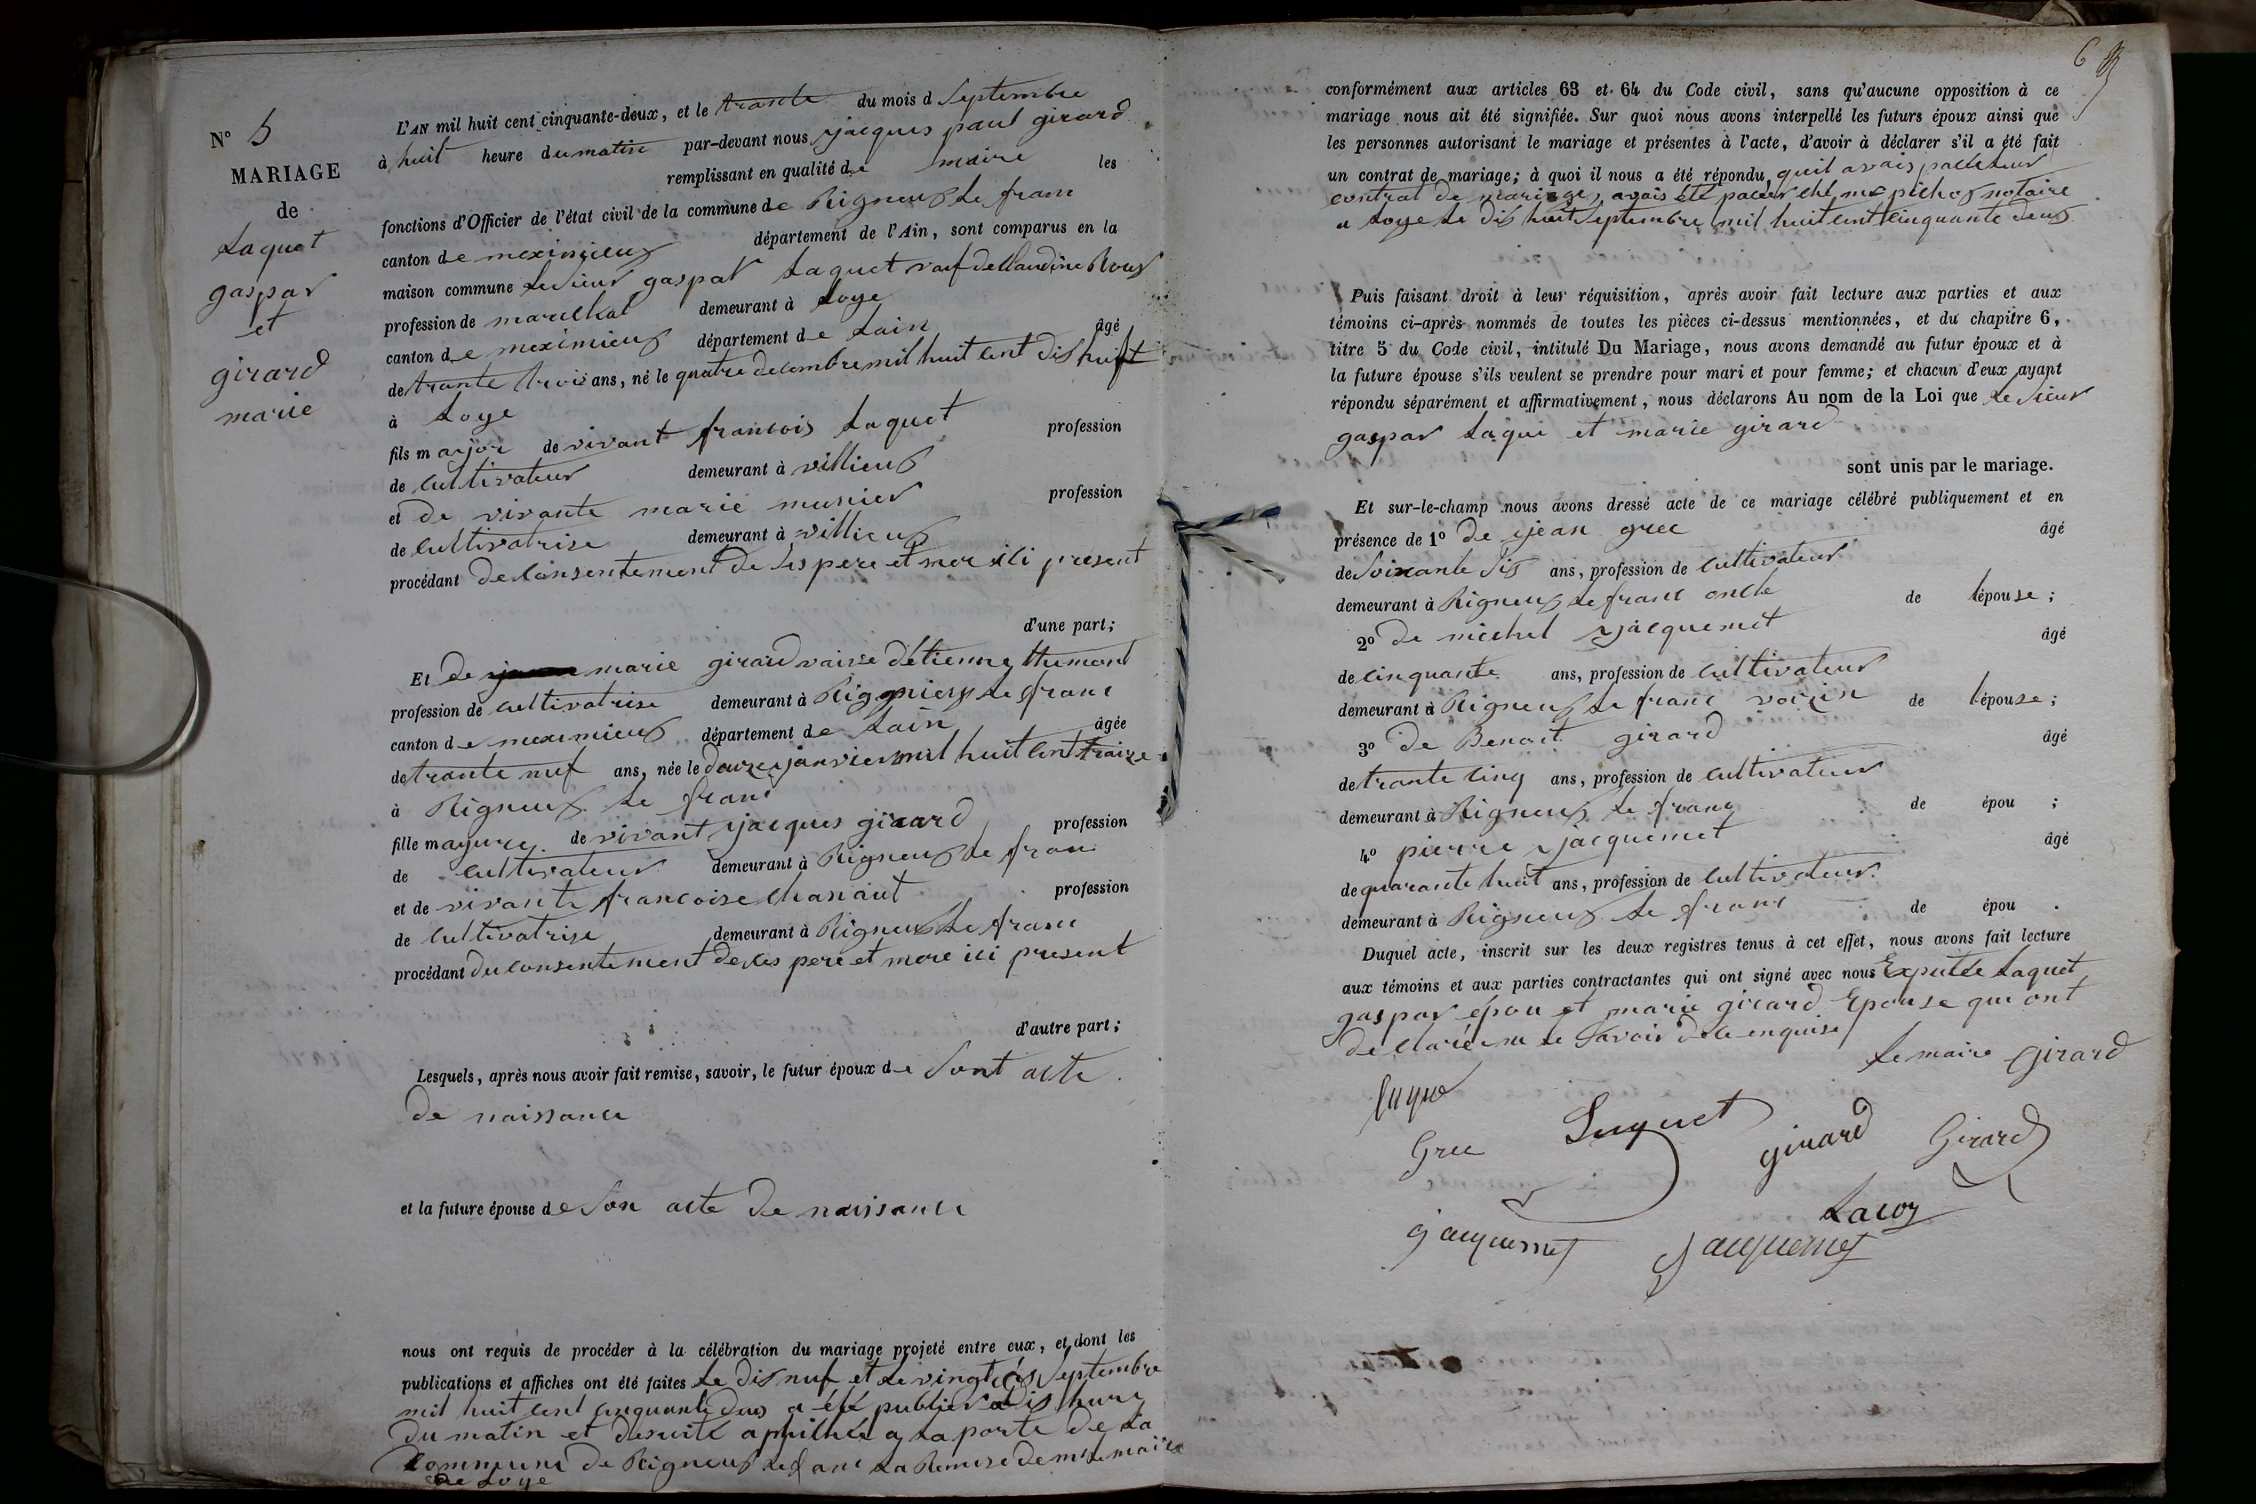 N° 5
MARIAGE
de
Laquet
gaspar
et
girard
marie
L'AN mil huit cent cinquante-deux, et le trante du mois d Septembre
à huit heure du matin par-devant nous jacques paul girard
remplissant en qualité de maire les
fonctions d'Officier de l'état civil de la commune de Rigneux le franc
canton de meximieux département de l'Ain, sont comparus en la
maison commune le sieur gaspar Laquet vauf de Claudine Roux
profession de marechal demeurant à Loye
canton de meximieux département de Lain âgé
de trante trois ans, né le quatre decembre mil huit cent dis huit
à Loye
fils major de vivant francois Laquet profession
de cultivateur demeurant à villieux
et de vivante marie munier profession
de cultivatrise demeurant à villieux
procédant de consentement de ses pere et mere ici present
d'une part;
Et de marie girard vaive d'étienne thumont
profession de cultivatrise demeurant à Rignieux le franc
canton de meximieux département de Lain âgée
de trante neuf ans, née le douze janvier mil huit cent traize
à Rigneux le franc
fille mayure de vivant jacques girard profession
de cultivateur demeurant à Rigneux le franc
et de vivante francoise Chanaut profession
de cultivatrise demeurant à Rigneux le franc
procédant du consentement de ces pere et mere ici present
d'autre part;
Lesquels, après nous avoir fait remise, savoir, le futur époux de sont acte
de naissance
et la future épouse de son acte de naissance
nous ont requis de procéder à la célébration du mariage projeté entre eux, et dont les
publications et affiches ont été faites le dis neuf et le vingt six septembre
mil huit cent cinquante deux a été publier a dis heure
du matin et desuite affichée a la porte de la
Commune de Rigneux le franc la Remise de mr le maire
de Loye
6
conformément aux articles 63 et 64 du Code civil, sans qu'aucune opposition à ce
mariage nous ait été signifiée. Sur quoi nous avons interpellé les futurs époux ainsi que
les personnes autorisant le mariage et présentes à l'acte, d'avoir à déclarer s'il a été fait
un contrat de mariage; à quoi il nous a été répondu quil avais
contrat de mariage, avais été me notaire
a Loye le dis huit septembre mil huit cent cinquante deux
Puis faisant droit à leur réquisition, après avoir fait lecture aux parties et aux
témoins ci-après nommés de toutes les pièces ci-dessus mentionnées, et du chapitre 6,
titre 5 du Code civil, intitulé Du Mariage, nous avons demandé au futur époux et à
la future épouse s'ils veulent se prendre pour mari et pour femme; et chacun d'eux ayant
répondu séparément et affirmativement, nous déclarons Au nom de la Loi que le sieur
gaspar Laqui et marie girard
sont unis par le mariage.
Et sur-le-champ nous avons dressé acte de ce mariage célébré publiquement et en
présence de 1° de jean grec âgé
de soixante dis ans, profession de cultivateur
demeurant à Rigneux le franc oncle de lépouse;
2° de michel jacquemet âgé
de cinquante ans, profession de cultivateur
demeurant à Rigneux le franc voizin de lépouse;
3° de Benoit girard âgé
de trante cinq ans, profession de cultivateur
demeurant à Rigneux le franc de épou ;
4° pierre jacquemet âgé
de quarante huit ans, profession de cultivateur
demeurant à Rigneux le franc de épou .
Duquel acte, inscrit sur les deux registres tenus à cet effet, nous avons fait lecture
aux témoins et aux parties contractantes qui ont signé avec nous Exputée Laquet
gaspar épou et marie girard Epouse qui ont
declarée ne le savoir dela enquise
Le maire Girard
luque
Grec Luquet girard Girard
jacquemet Lacoz
Jacquemet